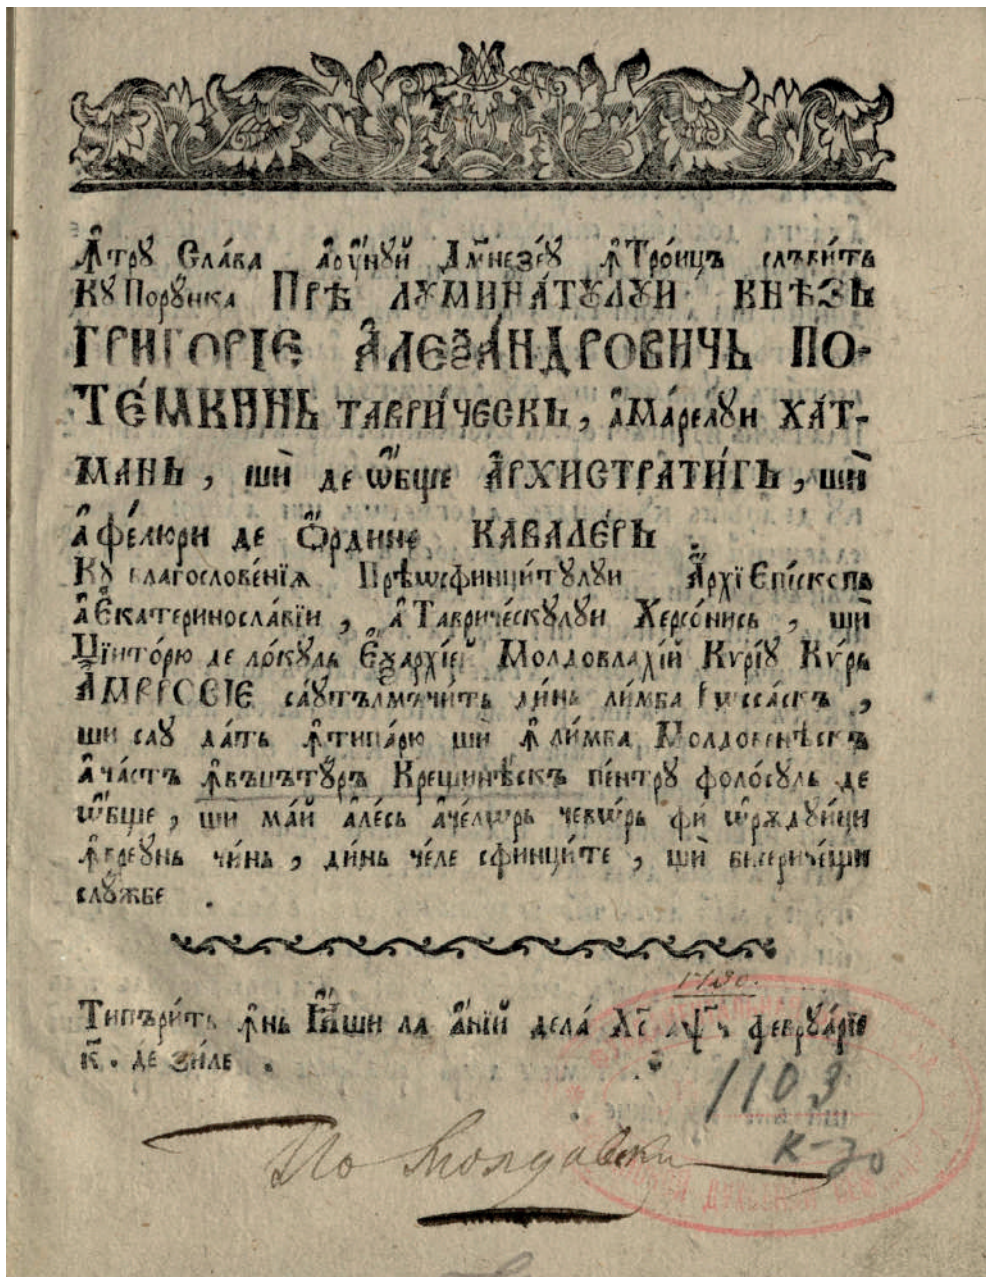 Ꙟтру Сла́ва аꙋ́нꙋй Дм҃незе́ꙋ ꙟТро́ицъ слъви́тъ
Кꙋ Порꙋ́нка Прѣ лꙋмина́тꙋлꙋи кнѣ́зь
ГРИГО́РІЕ АЛЕѮА́НДРОВИЧЬ ПО-
ТЕ́МКИНЬ ТАВРИ́ЧЕСКЪ, а҆Ма́релꙋи ХА́Т-
МАНЬ, шѝ де ѿбще АРХИСТРАТИ́ГЪ, шѝ
а҆фе́люри де О҆́рдине КАВАЛЕ́РЬ.
Кꙋ благослове́нїѧ Прѣѡсфинци́тꙋлꙋи А҆рхїЕпі́скопъ
а҆Екатериносла́вїи, а҆Тавриче́скꙋлꙋи Херсо́нись, шѝ
Цїито́рю де ло́кꙋль Еѯархі́ей Молдовлахі́й Кѷрі́ꙋ Кѵ́рь
АМВРОСІЕ са́ꙋтълмъчи́тъ ди́нь ли́мба Рꙋсса́скъ,
ши саꙋ да́тъ ꙟтипа́рю шѝ ꙟли́мба Молдовенѣ́скъ
а҆ча́стъ ꙟвъцътꙋ́ръ Крещинѣ́скъ пе́нтрꙋ фоло́сꙋль де
ѡ҆бще, шѝ ма́й а҆ле́сь а҆че́лѡрь чевѡ́рь фѝ ѡ҆рѫдꙋи́ци
ꙟвреꙋ́нь чи́нь, ди́нь че́ле сфинци́те, шѝ бисериче́щи
слꙋ́жбе.
1790.
Типъри́тъ ꙟ҆нь І҆́Аши ла а҆́нїй дела́ Хс҃ ҂аѱ҃ч, феврꙋа́рїе
к҃. де зи́ле.
1103
К-30
По Молдавски